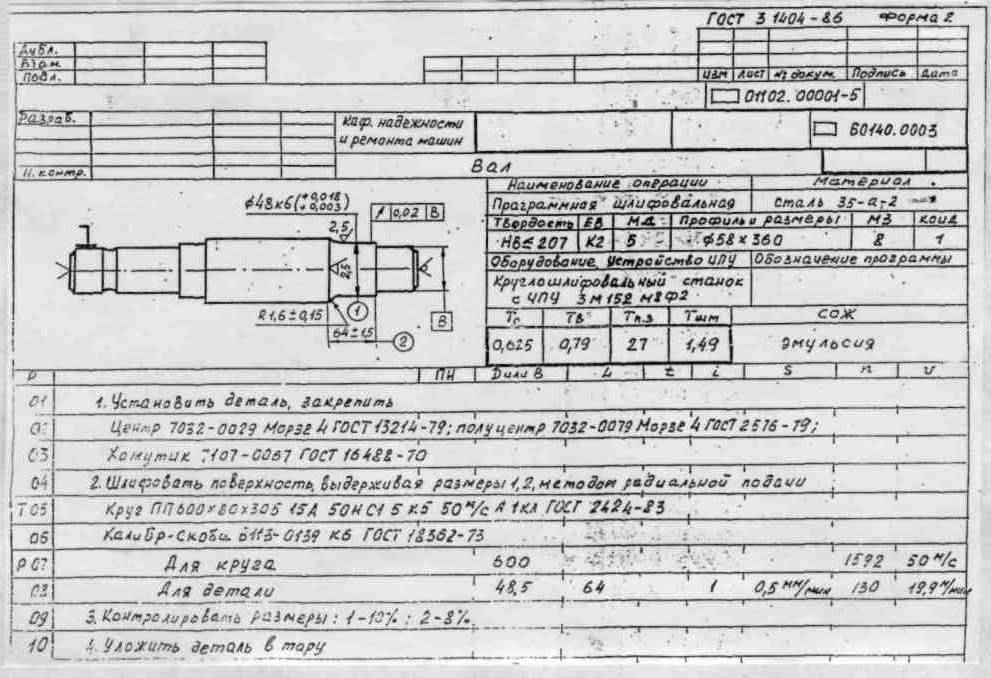 ГОСТ 3 1404-86 Форма 2
Дубл.
Взам.
Подл.
Изм Лист № докум. Подпись Дата
01102.00001-5
Разраб.
Каф. надежности
и ремонта машин
60140.0003
Н. контр.
Вал
Наименование операции Материал
Программная шлифовальная Сталь 35-а-2
Твердость ЕВ МД Профиль и размеры МЗ КОИД
НВ≤207 К2 5 ф58×360 8 1
Оборудование, устройство ЧПУ Обозначение программы
Круглошлифовальный станок
с ЧПУ 3М152 М2Ф2
То Тв Тп.з Тшт СОЖ
0,625 0,79 27 1,49 Эмульсия
ф48к6(+0,018
+0,003)
2,5
0,02 В
2,5
R1,6±0,15
1
64±1,5
2
В
Р ПИ D или В L t i S n v
01 1. Установить деталь, закрепить
02 Центр 7032-0029 Морзе 4 ГОСТ 13214-79; полуцентр 7032-0079 Морзе 4 ГОСТ 2576-79;
03 Хомутик 7107-0067 ГОСТ 16488-70
04 2. Шлифовать поверхность, выдерживая размеры 1,2, методом радиальной подачи
Т 05 Круг ПП600×80×305 15А 50Н С1 5 К5 50 м/с А 1кл ГОСТ 2424-83
06 Калибр-скоба 8113-0139 К6 ГОСТ 18362-73
Р 07 Для круга 600 1592 50 м/с
08 Для детали 48,5 64 1 0,5 мм/мин 130 19,9 м/мин
09 3. Контролировать размеры: 1-10%; 2-8%
10 4. Уложить деталь в тару